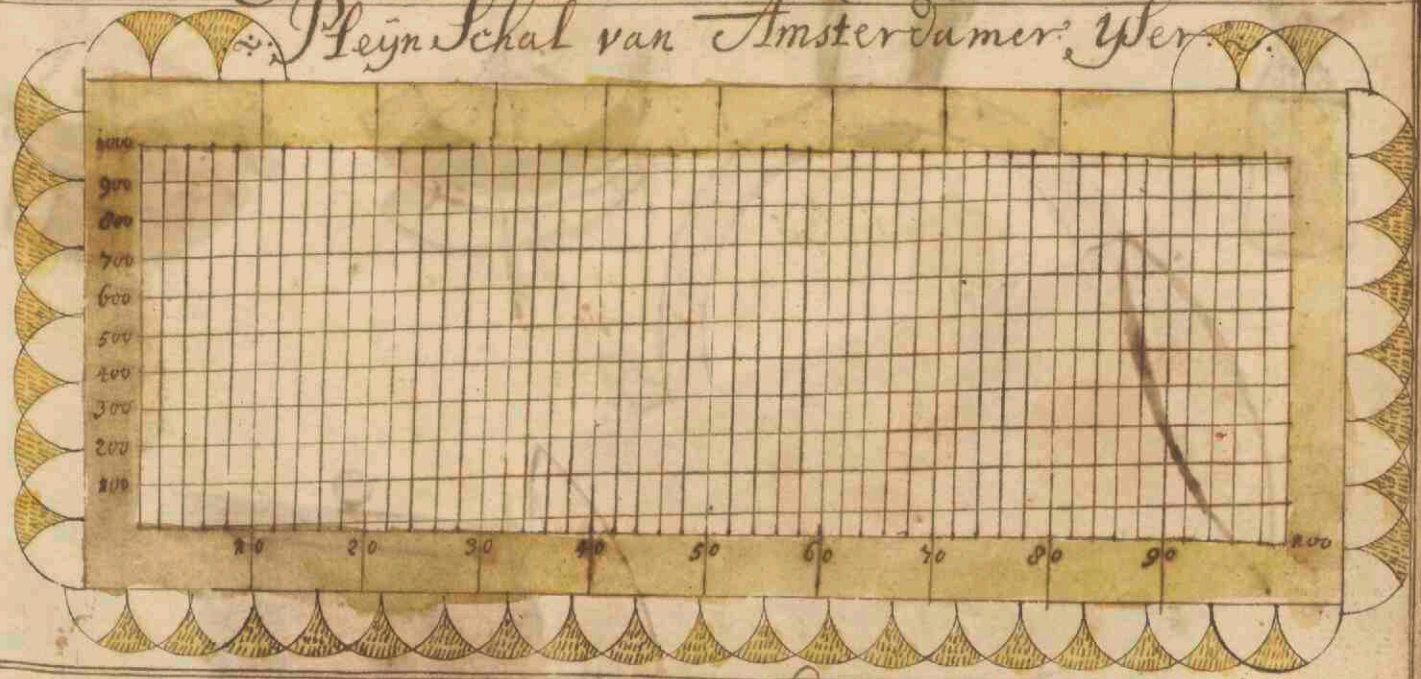 Pleÿn Schal van Amsterdamer ÿser
1000
900
800
700
600
500
400
300
200
100
10 20 30 40 50 60 70 80 90 100